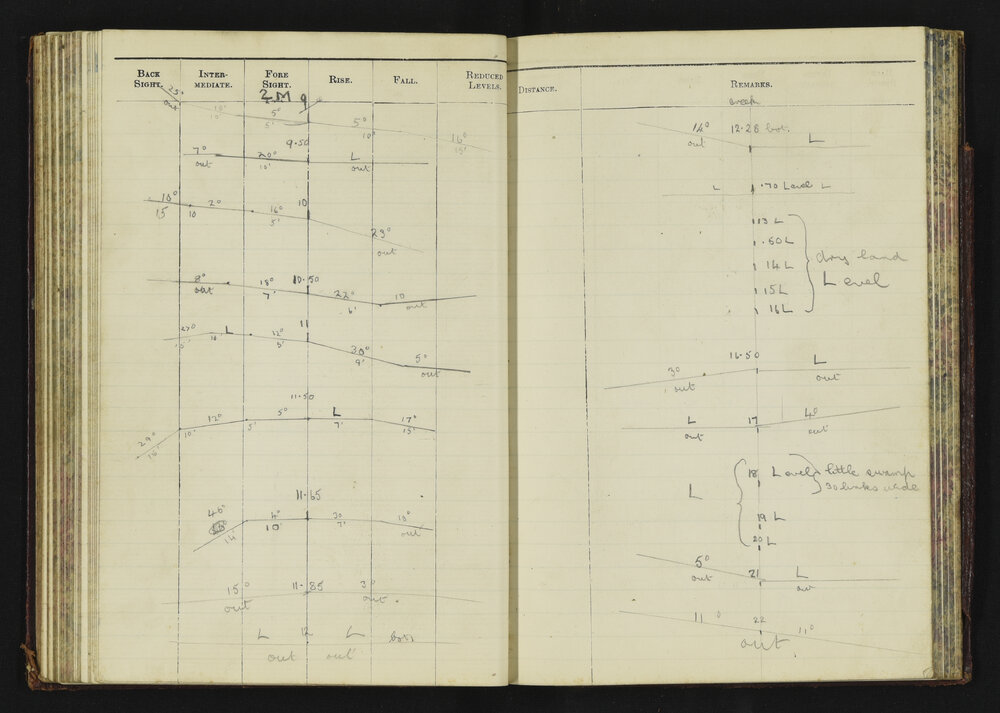 BACK SIGHT. INTER-MEDIATE. FORE SIGHT. RISE. FALL. REDUCED LEVELS.
2M 9
25° 10' 5° 5° 16°
out 10' 5' 10' 15'
9.50
7° 20° L
out 10' out
10
10° 2° 16° 23°
15 10 5' out
10.50
8° 18° 22° 10
out 7' 6' out
11
27° L 12° 30° 5°
5' 10' 5' 9' out
11.50
29° 12° 5° L 17°
16' 10' 5' 7' 15'
11.65
46° 4° 30 10°
14 10' 7' out
15° 11.85 3°
out out.
L 12 L
out out
DISTANCE. REMARKS.
creek
14° 12.28 L
out
L .70 Level L
13 L
.50 L
14 L
15 L
16 L
dry land
Level
16.50
3° L
out out
L 17 4°
out out
L
18 Level little swamp
30 links wide
19 L
20 L
5° 21 L
out out
11° 22 11°
out